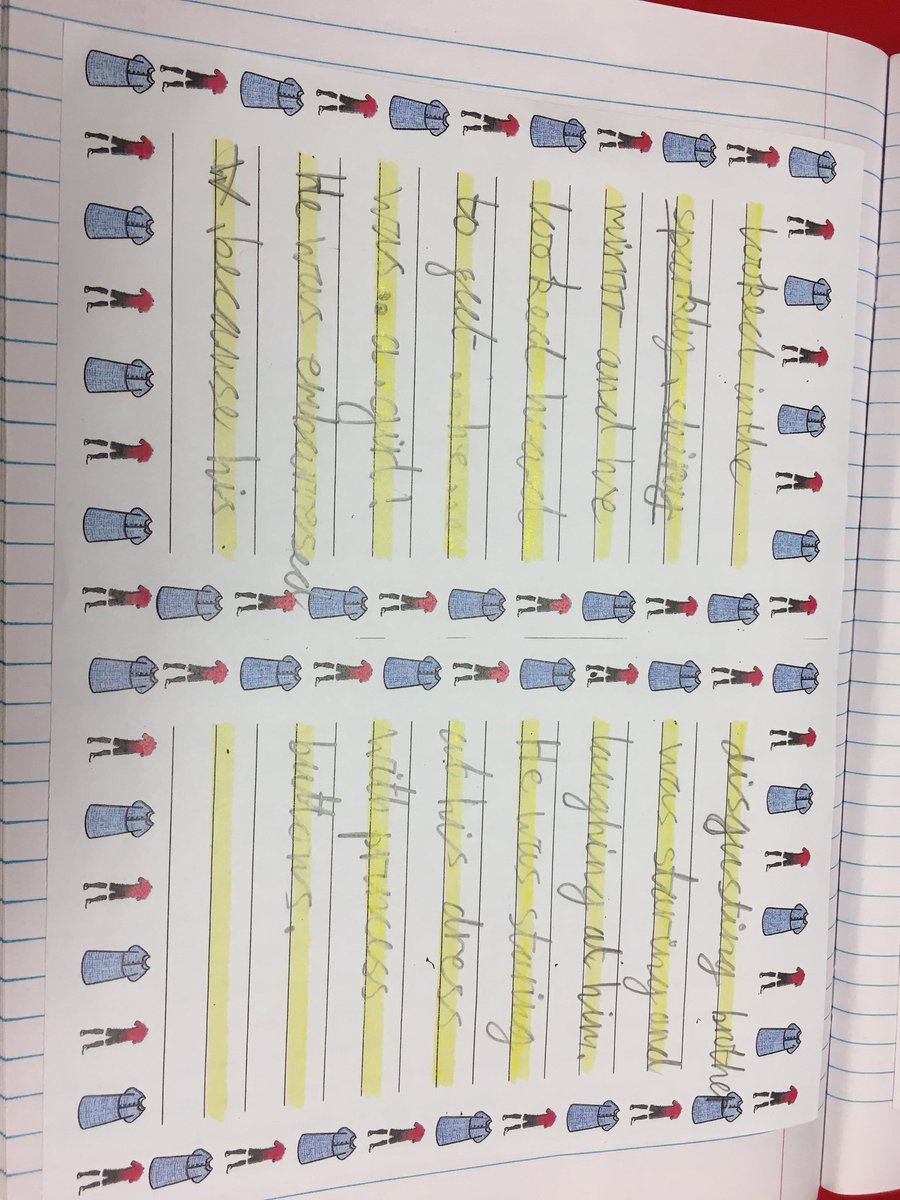 looked in the
sparkly, shiny
mirror and he
looked heard
to get ... he
was .. a girl!
He was embarresed
because his
disgusting brother
was staring and
laughing at him.
He was staring
at his dress
with princess
buttons.